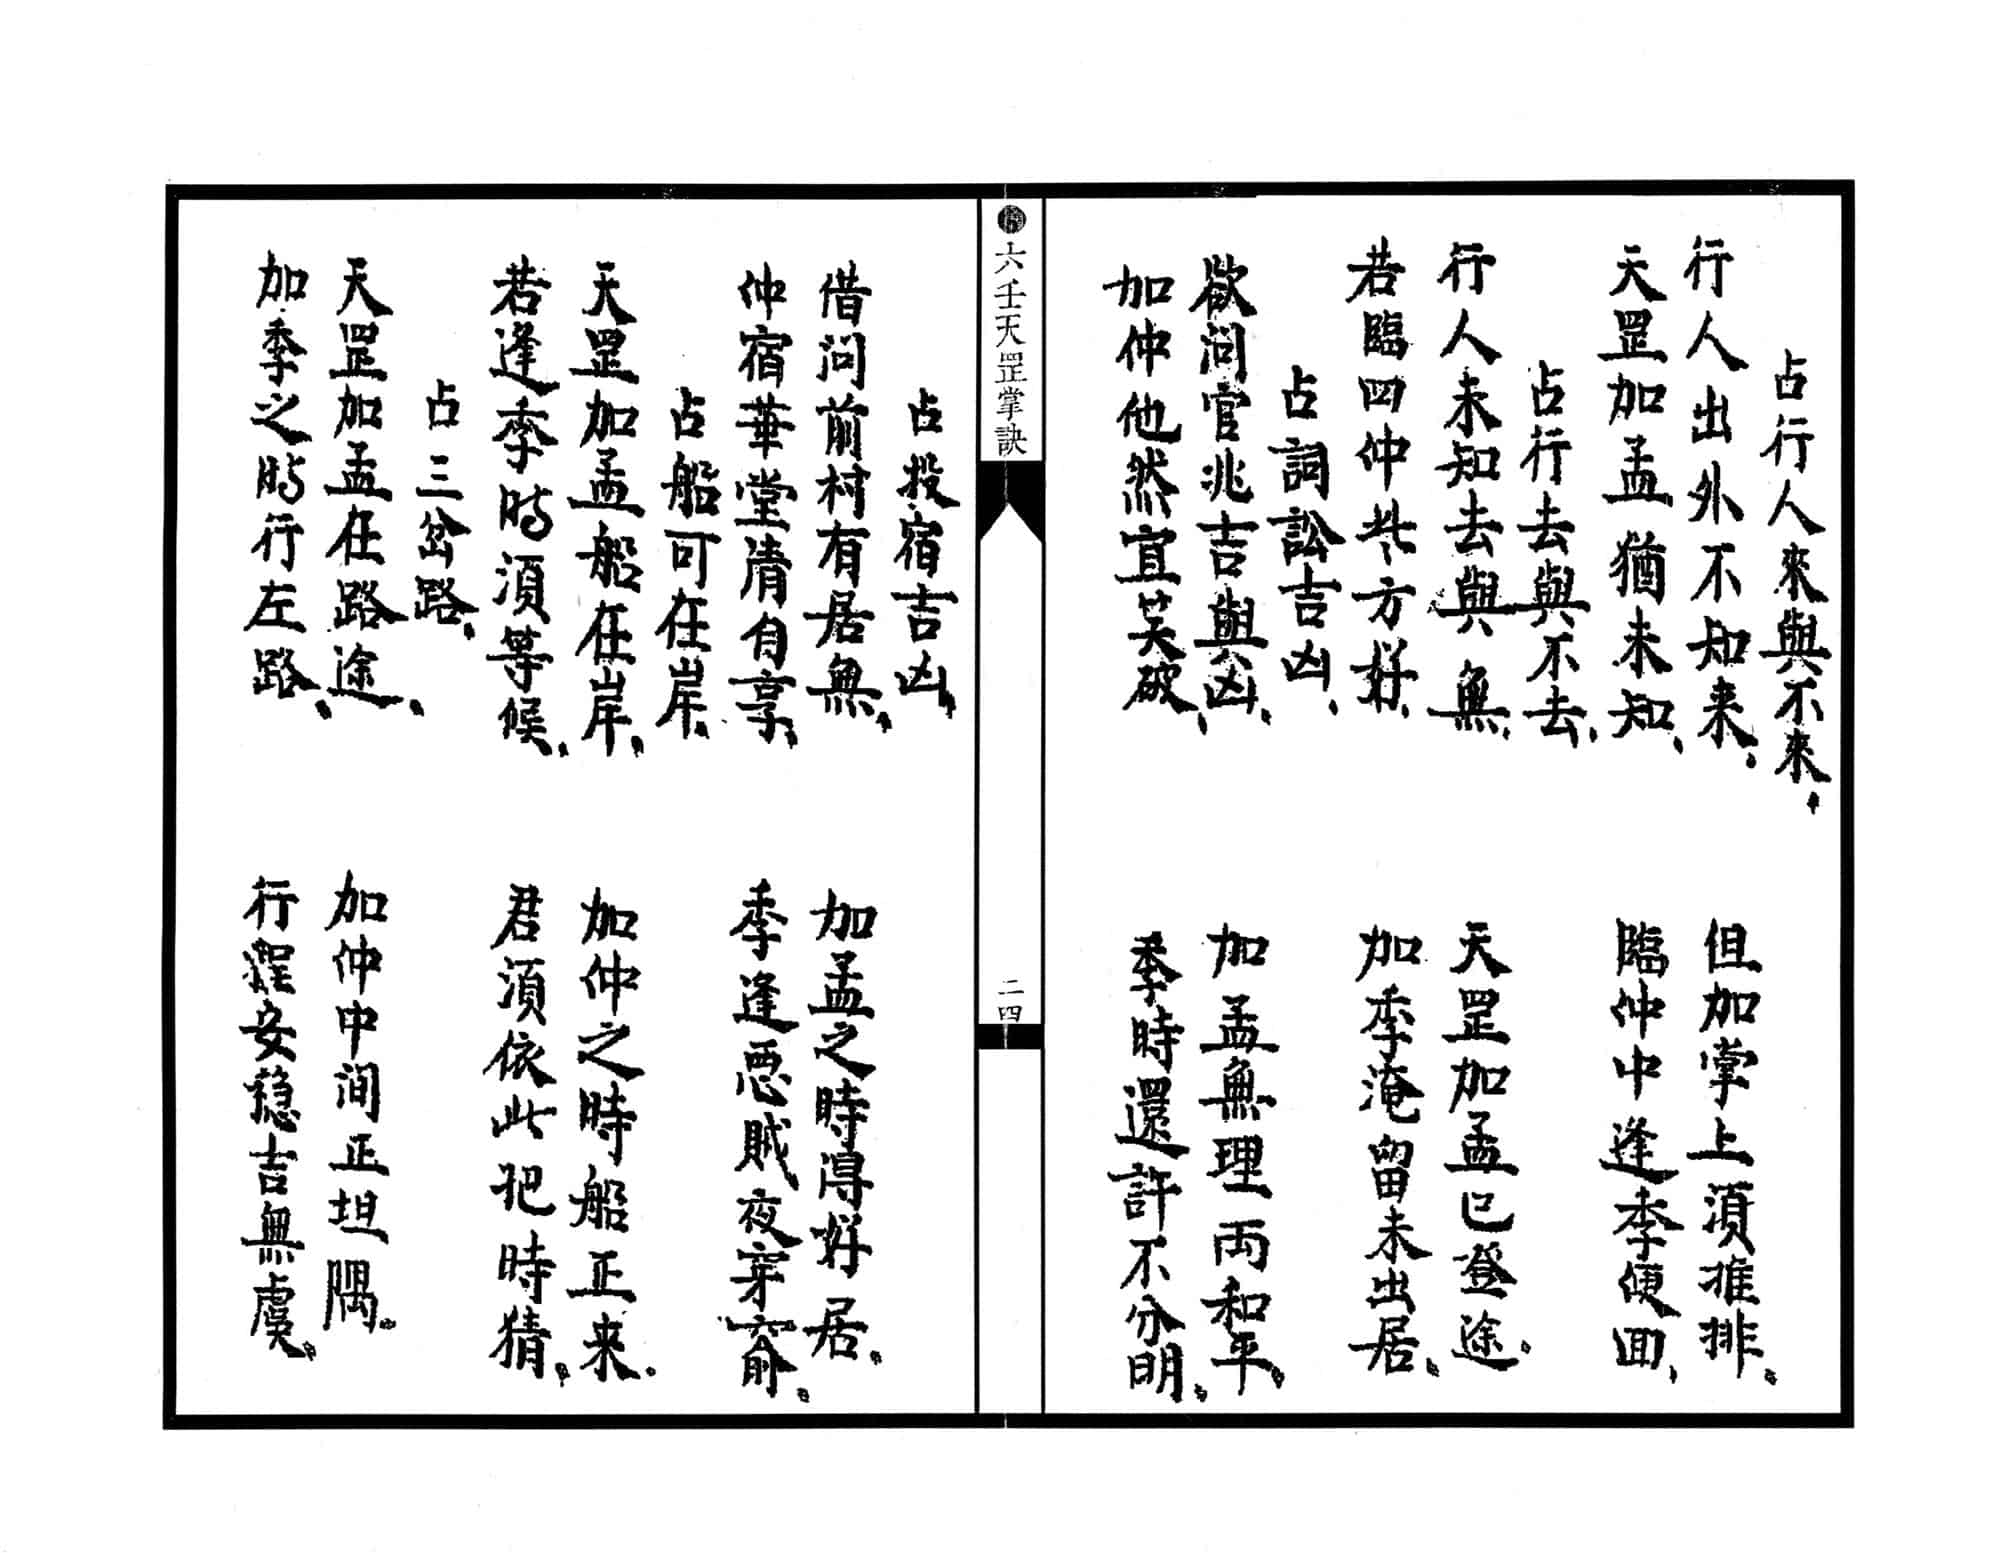 占行人來與不來、
行人出外不知来、
但加掌上須推排。
天罡加孟猶未知、
臨仲中逢季便回、
占行去與不去、
行人未知去與無、
天罡加孟已登途。
若臨四仲共方好、
加季淹留未出居。
占詞訟吉凶、
欲问官兆吉與凶、
加孟無理両和平。
加仲他然宜笑破、
季時還許不分明。
六壬天罡掌訣
二四
占投宿吉凶、
借问前村有居無、
加孟之時得好居。
仲宿華堂清自享、
季逢悪賊夜穿窬。
占船可在岸、
天罡加孟船在岸、
加仲之時船正来。
若逢季时須等候、
君須依此把時猜。
占三岔路、
天罡加孟在路途、
加仲中间正坦隅。
加季之时行左路、
行程安稳吉無虞。